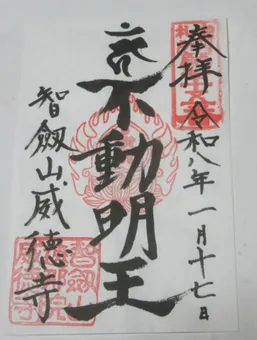 奉拝
令和八年一月十七日
不動明王
智劔山威徳寺